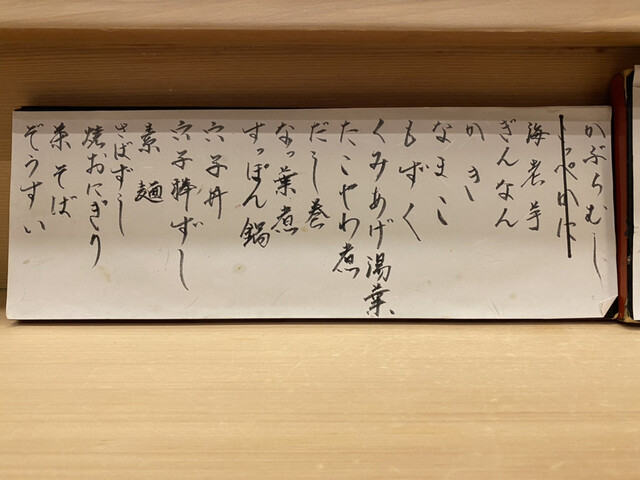 かぶらむし
こっぺかに
海老芋
ぎんなん
かき
なまこ
もずく
くみあげ湯葉
たこやわ煮
だし巻
なっ葉煮
すっぽん鍋
穴子丼
穴子棒ずし
素麺
さばずし
焼おにぎり
茶そば
ぞうすい